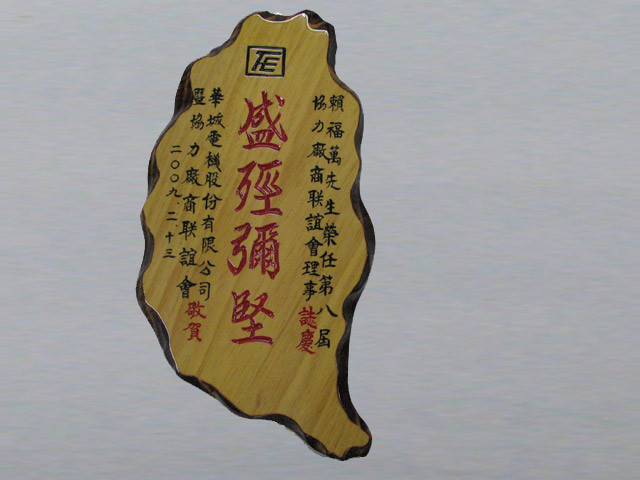 TE
賴福萬先生榮任第八屆
協力廠商联誼會理事誌慶
盛彌堅
華城電機股份有限公司
暨協力廠商联誼會敬賀
二〇〇九.二.十三